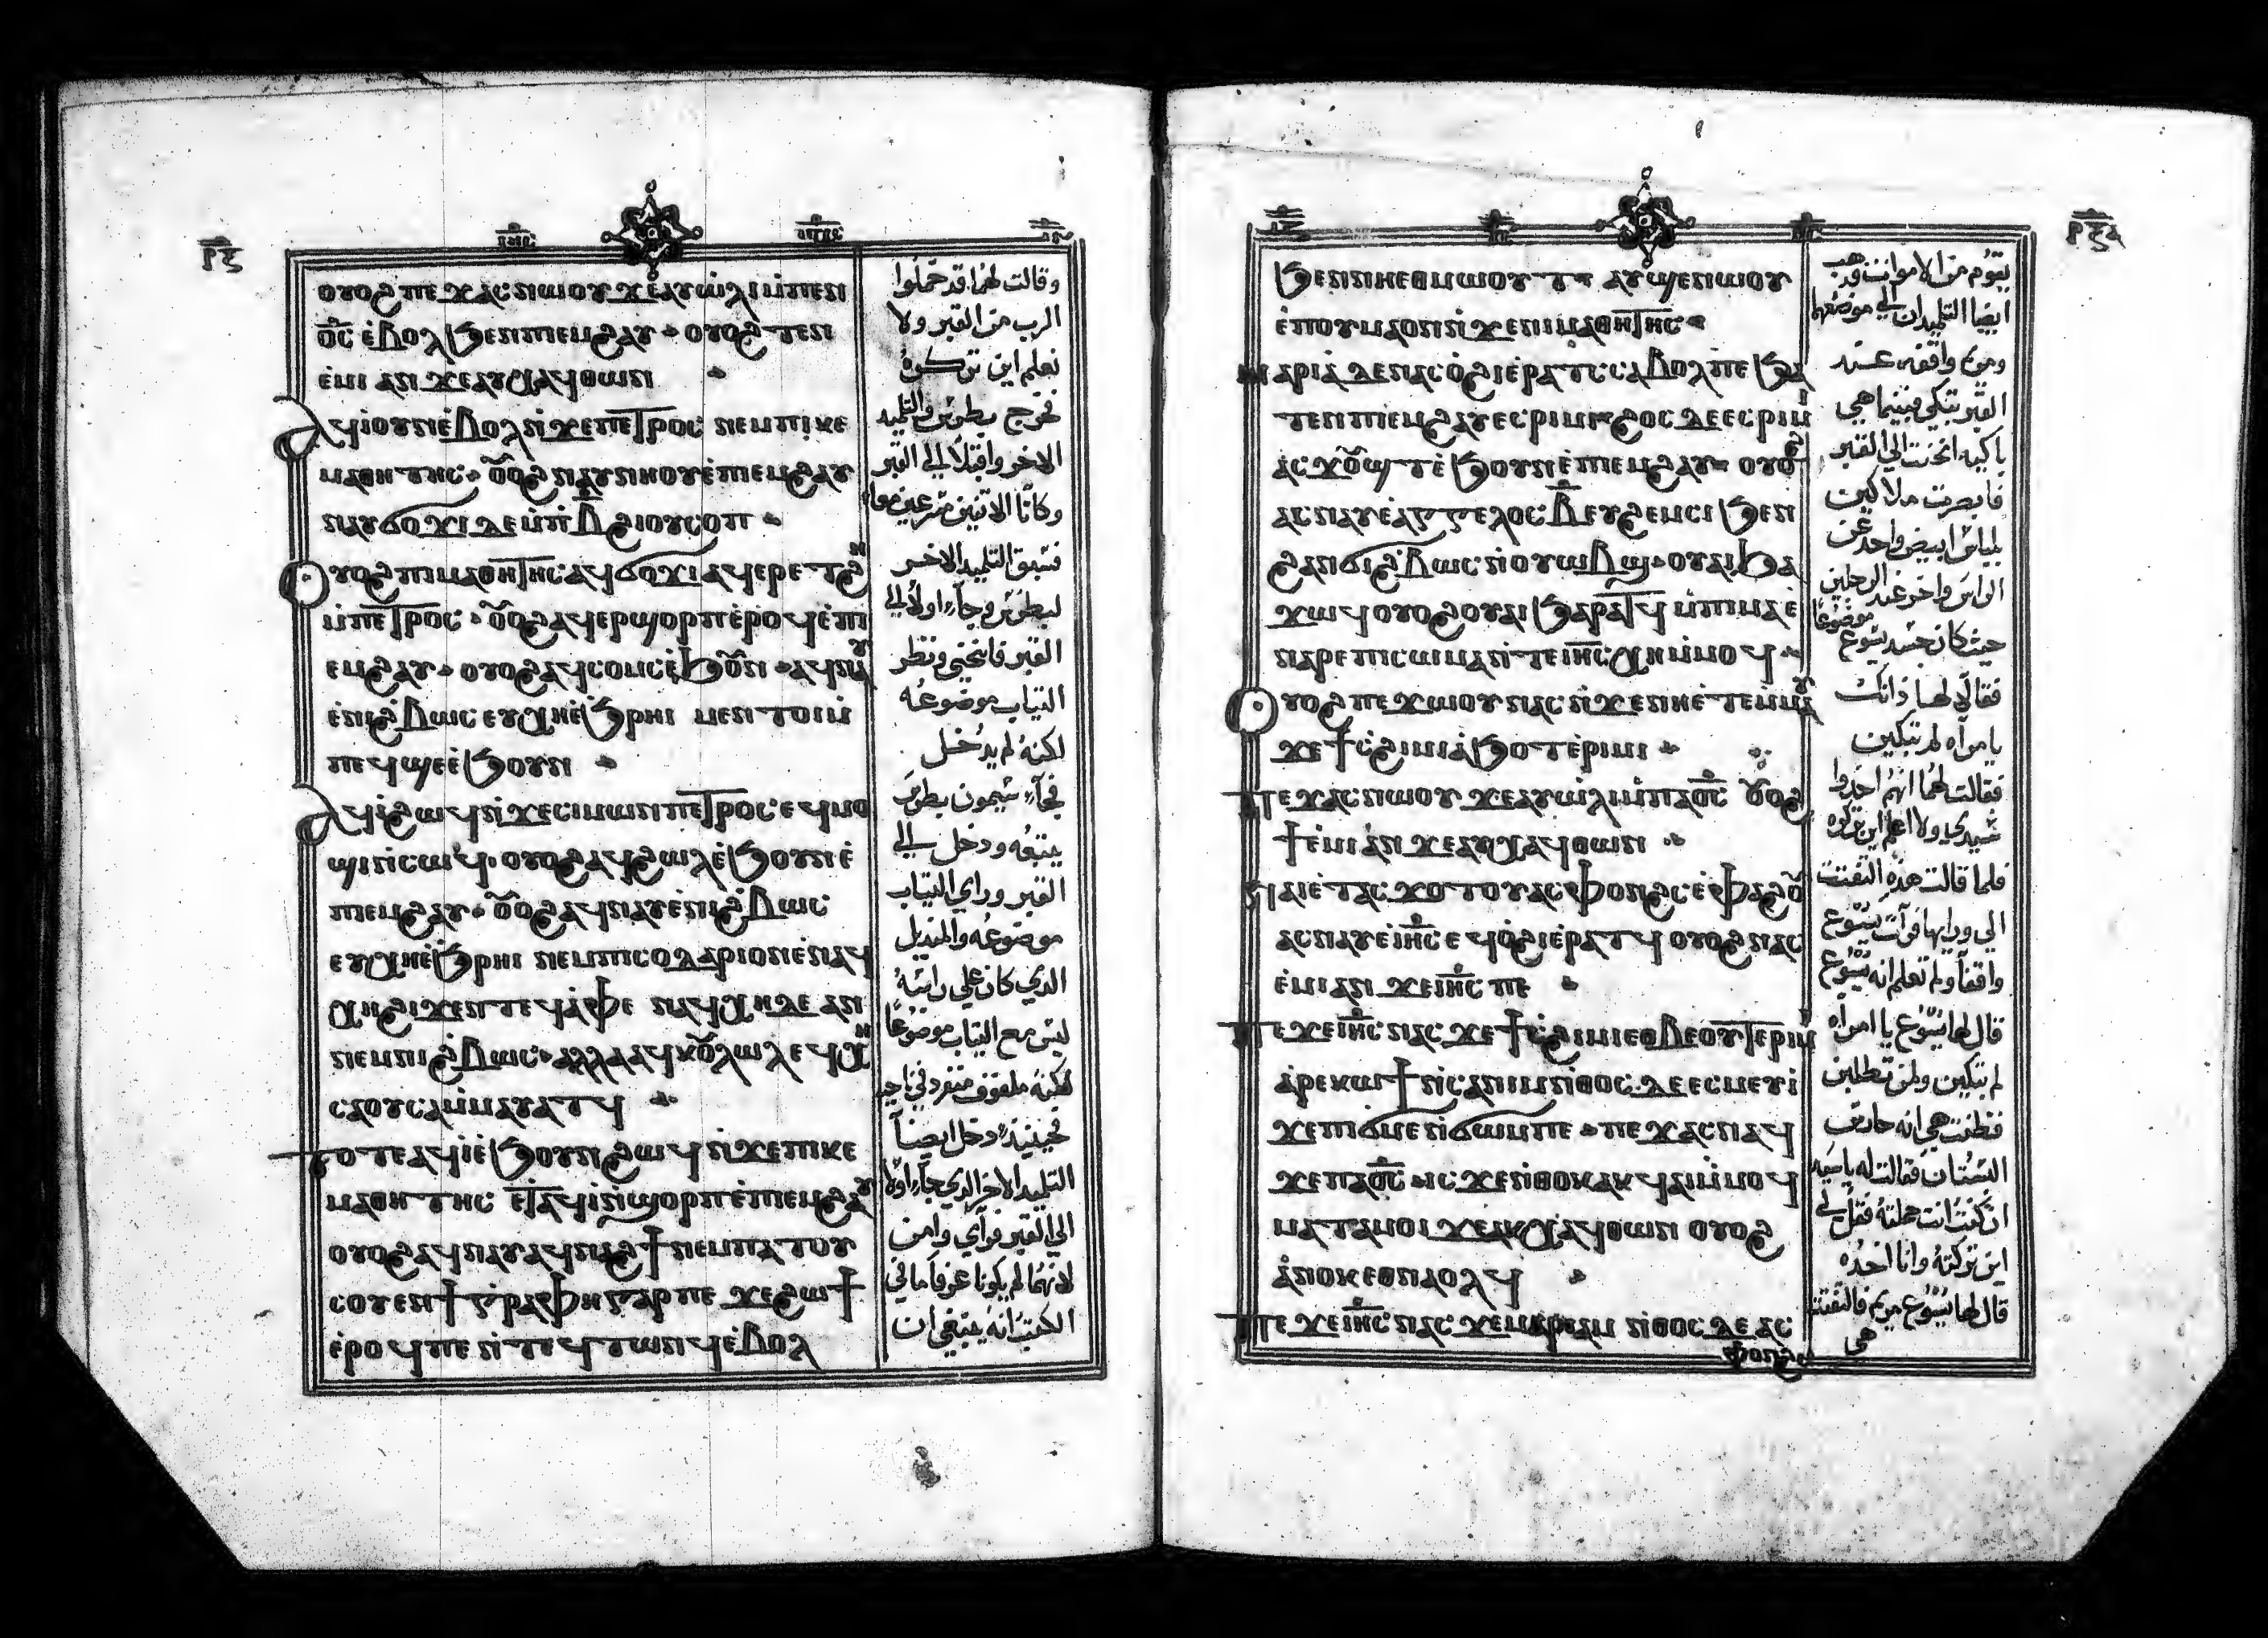 ⲟⲩⲟϩ ⲡⲉϫⲁⲥ ⲛⲱⲟⲩ ϫⲉ ⲁⲩⲱⲗⲓ ⲙ̀ⲡⲉⲛ
ⲟ̅ⲥ̅ ⲉ̀ⲃⲟⲗ ϧⲉⲛ ⲡⲓⲉⲙϩⲁⲩ ⲟⲩⲟϩ ⲧⲉⲛ
ⲉ̀ⲙⲓ ⲁⲛ ϫⲉ ⲁⲩⲭⲁϥ ⲑⲱⲛ
ⲁϥⲓ̀ ⲟⲩⲛ ⲉ̀ⲃⲟⲗ ⲛ̀ϫⲉ ⲡⲉⲧⲣⲟⲥ ⲛⲉⲙ ⲡⲓⲕⲉ
ⲙⲁⲑⲏⲧⲏⲥ ⲟⲩⲟϩ ⲛⲁⲩⲛⲏⲟⲩ ⲉ̀ⲡⲓⲉⲙϩⲁⲩ
ⲛⲁⲩϭⲟϫⲓ ⲇⲉ ⲙ̀ⲡⲃ̅ ϩⲓ ⲟⲩⲥⲟⲡ
ⲟⲩⲟϩ ⲡⲓⲙⲁⲑⲏⲧⲏⲥ ⲁϥϭⲟϫⲓ ⲁϥⲉⲣⲉⲧϩⲏ
ⲙ̀ⲡⲉⲧⲣⲟⲥ ⲟⲩⲟϩ ⲁϥⲉⲣϣⲟⲣⲡ ⲉ̀ⲣⲟϥ ⲉ̀ⲡⲓ
ⲉⲙϩⲁⲩ ⲟⲩⲟϩ ⲁϥⲥⲟⲙⲥ ⲉ̀ϧⲟⲩⲛ ⲁϥⲛⲁⲩ
ⲉ̀ⲛⲓϩ̀ⲃⲱⲥ ⲉⲩⲭⲏ ⲉ̀ϧⲣⲏⲓ ⲙⲉⲛⲧⲟⲓ ⲙ̀
ⲡⲉϥϣⲉ ⲉ̀ϧⲟⲩⲛ
ⲁϥⲓ̀ ϩⲱϥ ⲛ̀ϫⲉ ⲥⲓⲙⲱⲛ ⲡⲉⲧⲣⲟⲥ ⲉϥⲙⲟ
ϣⲓ ⲛ̀ⲥⲱϥ ⲟⲩⲟϩ ⲁϥϩⲱⲗ ⲉ̀ϧⲟⲩⲛ ⲉ̀
ⲡⲓⲉⲙϩⲁⲩ ⲟⲩⲟϩ ⲁϥⲛⲁⲩ ⲉ̀ⲛⲓϩ̀ⲃⲱⲥ
ⲉⲩⲭⲏ ⲉ̀ϧⲣⲏⲓ ⲛⲉⲙ ⲡⲓⲥⲟⲇⲁⲣⲓⲟⲛ ⲉ̀ⲛⲁϥ
ⲭⲏ ϩⲓϫⲉⲛ ⲧⲉϥⲁ̀ⲫⲉ ⲛⲁϥⲭⲏ ⲇⲉ ⲁⲛ
ⲛⲉⲙ ⲛⲓϩ̀ⲃⲱⲥ ⲁⲗⲗⲁ ⲁϥⲕⲟⲩⲗⲱⲗ ⲉϥⲭⲏ
ⲥⲁⲟⲩⲥⲁ ⲙ̀ⲙⲁⲩⲁⲧϥ
ⲧⲟⲧⲉ ⲁϥⲓ̀ ⲉ̀ϧⲟⲩⲛ ϩⲱϥ ⲛ̀ϫⲉ ⲡⲓⲕⲉ
ⲙⲁⲑⲏⲧⲏⲥ ⲉ̀ⲧⲁϥⲓ̀ ⲛ̀ϣⲟⲣⲡ ⲉ̀ⲡⲓⲉⲙϩⲁⲩ
ⲟⲩⲟϩ ⲁϥⲛⲁⲩ ⲁϥⲛⲁϩϯ ⲛⲉⲙⲡⲁⲧⲟⲩ
ⲥⲟⲩⲉⲛ ϯⲅ̀ⲣⲁⲫⲏ ⲅⲁⲣ ⲡⲉ ϫⲉ ϩⲱϯ
ⲉ̀ⲣⲟϥ ⲡⲉ ⲛ̀ⲧⲉϥⲧⲱⲛϥ ⲉ̀ⲃⲟⲗ
وقالت لهما قد حملوا
الرب من القبر ولا
نعلم اين تركوه
فخرج بطرس والتلميد
الاخر واقبلا الي القبر
وكانا الاتنين مسرعين معا
فسبق التلميد الاخر
لبطرس وجاء اولا الي
القبر فانحني ونظر
التياب موضوعه
لكنه لم يدخل
فجاء شيمون بطرس
يتبعه ودخل الي
القبر وراي التياب
موضوعه والمنديل
الدي كان علي راسه
ليس مع التياب موضوعا
لكنه ملفوف منفرد في ناحيه
فحينيذ دخل ايضا
التلميد الاخر الدي جاء اولا
الي القبر فراي وامن
لانهما لم يكونا عرفا ما في
الكتب انه ينبغي ان
ϧⲉⲛ ⲛⲏⲉⲑⲙⲱⲟⲩⲧ ⲁⲩϣⲉⲛⲱⲟⲩ
ⲉ̀ⲡⲟⲩⲙⲁ ⲟⲛ ⲛ̀ϫⲉ ⲛⲓⲙⲁⲑⲏⲧⲏⲥ
ⲙⲁⲣⲓⲁ ⲇⲉ ⲛⲁⲥⲟ̀ϩⲓ ⲉ̀ⲣⲁⲧⲥ ⲥⲁⲃⲟⲗ ⲡⲉ ϧⲁ
ⲧⲉⲛ ⲡⲓⲉⲙϩⲁⲩ ⲉⲥⲣⲓⲙⲓ ϩⲟⲥ ⲇⲉ ⲉⲥⲣⲓⲙⲓ
ⲁⲥϫⲟⲩϣⲧ ⲉ̀ϧⲟⲩⲛ ⲉ̀ⲡⲓⲉⲙϩⲁⲩ ⲟⲩⲟϩ
ⲁⲥⲛⲁⲩ ⲉ̀ⲁⲅⲅⲉⲗⲟⲥ ⲃ̅ ⲉⲩϩⲉⲙⲥⲓ ϧⲉⲛ
ϩⲁⲛϭⲓϩ̀ⲃⲱⲥ ⲛ̀ⲟⲩⲱⲃϣ ⲟⲩⲁⲓ ϧⲁ
ϫⲱϥ ⲟⲩⲟϩ ⲟⲩⲁⲓ ϧⲁⲣⲁⲧϥ ⲙ̀ⲡⲓⲙⲁ ⲉ̀
ⲛⲁⲣⲉ ⲡⲓⲥⲱⲙⲁ ⲛ̀ⲧⲉ ⲓⲏ̅ⲥ̅ ⲭⲏ ⲙ̀ⲙⲟϥ
ⲟⲩⲟϩ ⲡⲉϫⲱⲟⲩ ⲛⲁⲥ ⲛ̀ϫⲉ ⲛⲏ ⲉ̀ⲧⲉⲙⲙⲁⲩ
ϫⲉ ϯⲥ̀ϩⲓⲙⲓ ⲁ̀ϧⲟ ⲧⲉⲣⲓⲙⲓ
ⲡⲉϫⲁⲥ ⲛⲱⲟⲩ ϫⲉ ⲁⲩⲱⲗⲓ ⲙ̀ⲡⲁⲟ̅ⲥ̅ ⲟⲩⲟϩ
ϯⲉ̀ⲙⲓ ⲁⲛ ϫⲉ ⲁⲩⲭⲁϥ ⲑⲱⲛ
ⲛⲁⲓ ⲉ̀ⲧⲁⲥϫⲟⲧⲟⲩ ⲁⲥⲫⲟⲛϩⲥ ⲉ̀ⲫⲁϩⲟⲩ
ⲁⲥⲛⲁⲩ ⲉ̀ⲓⲏ̅ⲥ̅ ⲉϥⲟ̀ϩⲓ ⲉ̀ⲣⲁⲧϥ ⲟⲩⲟϩ ⲛⲁⲥ
ⲉ̀ⲙⲓ ⲁⲛ ϫⲉ ⲓⲏ̅ⲥ̅ ⲡⲉ
ⲡⲉϫⲉ ⲓⲏ̅ⲥ̅ ⲛⲁⲥ ϫⲉ ϯⲥ̀ϩⲓⲙⲓ ⲉⲑⲃⲉⲟⲩ ⲧⲉⲣⲓⲙⲓ
ⲁ̀ⲣⲉⲕⲱϯ ⲛ̀ⲥⲁ ⲛⲓⲙ ⲛ̀ⲑⲟⲥ ⲇⲉ ⲉⲥⲙⲉⲩⲓ
ϫⲉ ⲡⲓϭⲙⲉ ⲛ̀ϭⲱⲙ ⲡⲉ ⲡⲉϫⲁⲥ ⲛⲁϥ
ϫⲉ ⲡⲁⲟ̅ⲥ̅ ⲓⲥϫⲉ ⲛ̀ⲑⲟⲕ ⲁⲕϥⲁⲓ ⲙ̀ⲙⲟϥ
ⲙⲁⲧⲁⲙⲟⲓ ϫⲉ ⲁⲕⲭⲁϥ ⲑⲱⲛ ⲟⲩⲟϩ
ⲁ̀ⲛⲟⲕ ⲉⲑⲛⲁⲟⲗϥ
ⲡⲉϫⲉ ⲓⲏ̅ⲥ̅ ⲛⲁⲥ ϫⲉ ⲙⲁⲣⲓⲁⲙ ⲛ̀ⲑⲟⲥ ⲇⲉ ⲁⲥ
ⲫⲟⲛϩⲥ
يقوم من الاموات فدهب
ايضا التلميدان الي موضعهما
ومريم واقفه عند
القبر تبكي فبينما هي
باكيه انحنت الي القبر
فابصرت ملاكين
بلباس ابيض واحد عن
الراس واخر عند الرجلين
حيث كان جسد يسوع موضوعا
فقالا لها ذانك
يا مراه لم تبكين
فقالت لهما انهم اخدوا
سيدي ولا اعلم اين تركوه
فلما قالت هذه التفتت
الي ورايها فرات يسوع
واقفا ولم تعلم انه يسوع
قال لها يسوع يا امراه
لم تبكين ولمن تطلبين
فظنت هي انه حارس
البستان فقالت له يا سيد
ان كنت انت حملته فقل لي
اين تركته وانا اخده
قال لها يسوع مريم فالتفتت
هي